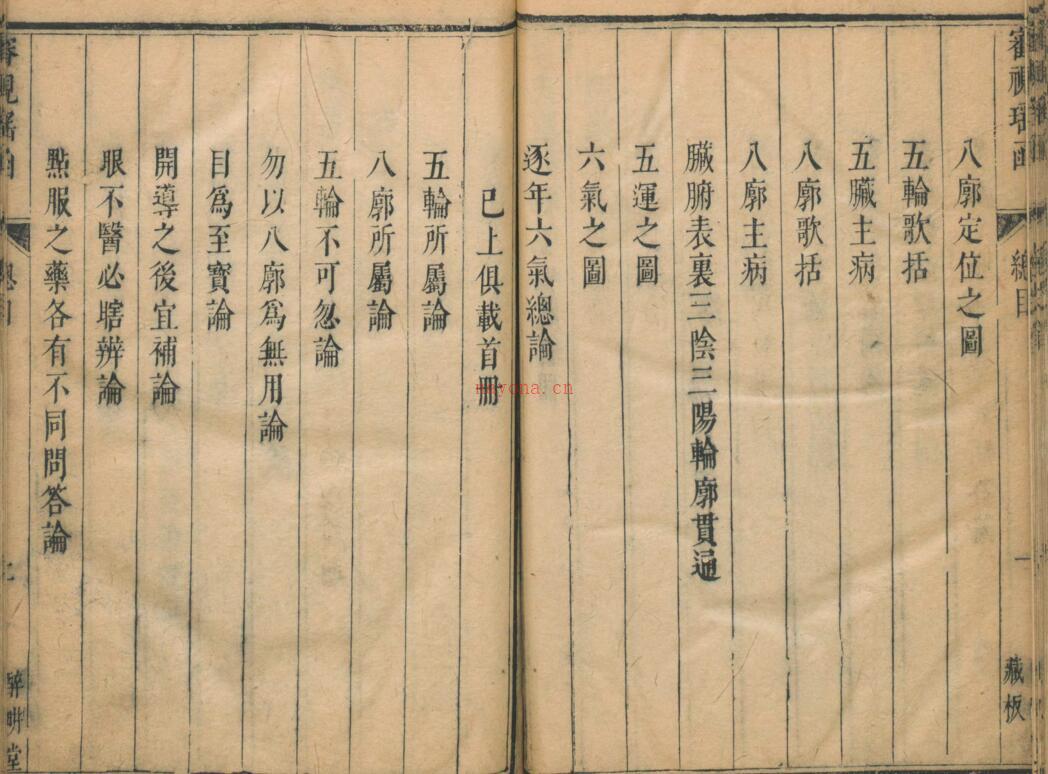 審視瑤函
總目
一
藏板
八廓定位之圖
五輪歌括
五臟主病
八廓歌括
八廓主病
臟腑表裏三陰三陽輪廓貫通
五運之圖
六氣之圖
逐年六氣總論
已上俱載首冊
五輪所屬論
八廓所屬論
五輪不可忽論
勿以八廓爲無用論
目爲至寶論
開導之後宜補論
眼不醫必瞎辨論
點服之藥各有不同問答論
審視瑤函
總目
醉耕堂
nayona.cn